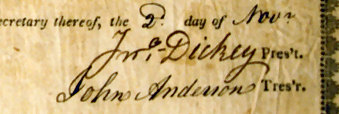 ecretary thereof, the 2d. day of Novr
Jno. Dickey Pres't.
John Anderson Tres'r.